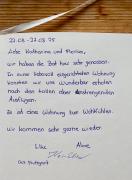 22.08 - 27.08.25
Liebe Katharina und Markus,
wir haben die Zeit hier sehr genossen.
In eurer liebevoll eingerichteten Wohnung
konnten wir uns wunderbar erholen
nach den tollen aber anstrengenden
Ausflügen.
Es ist eine Wohnung zum Wohlfühlen.
Wir kommen sehr gerne wieder
Aus Stuttgart